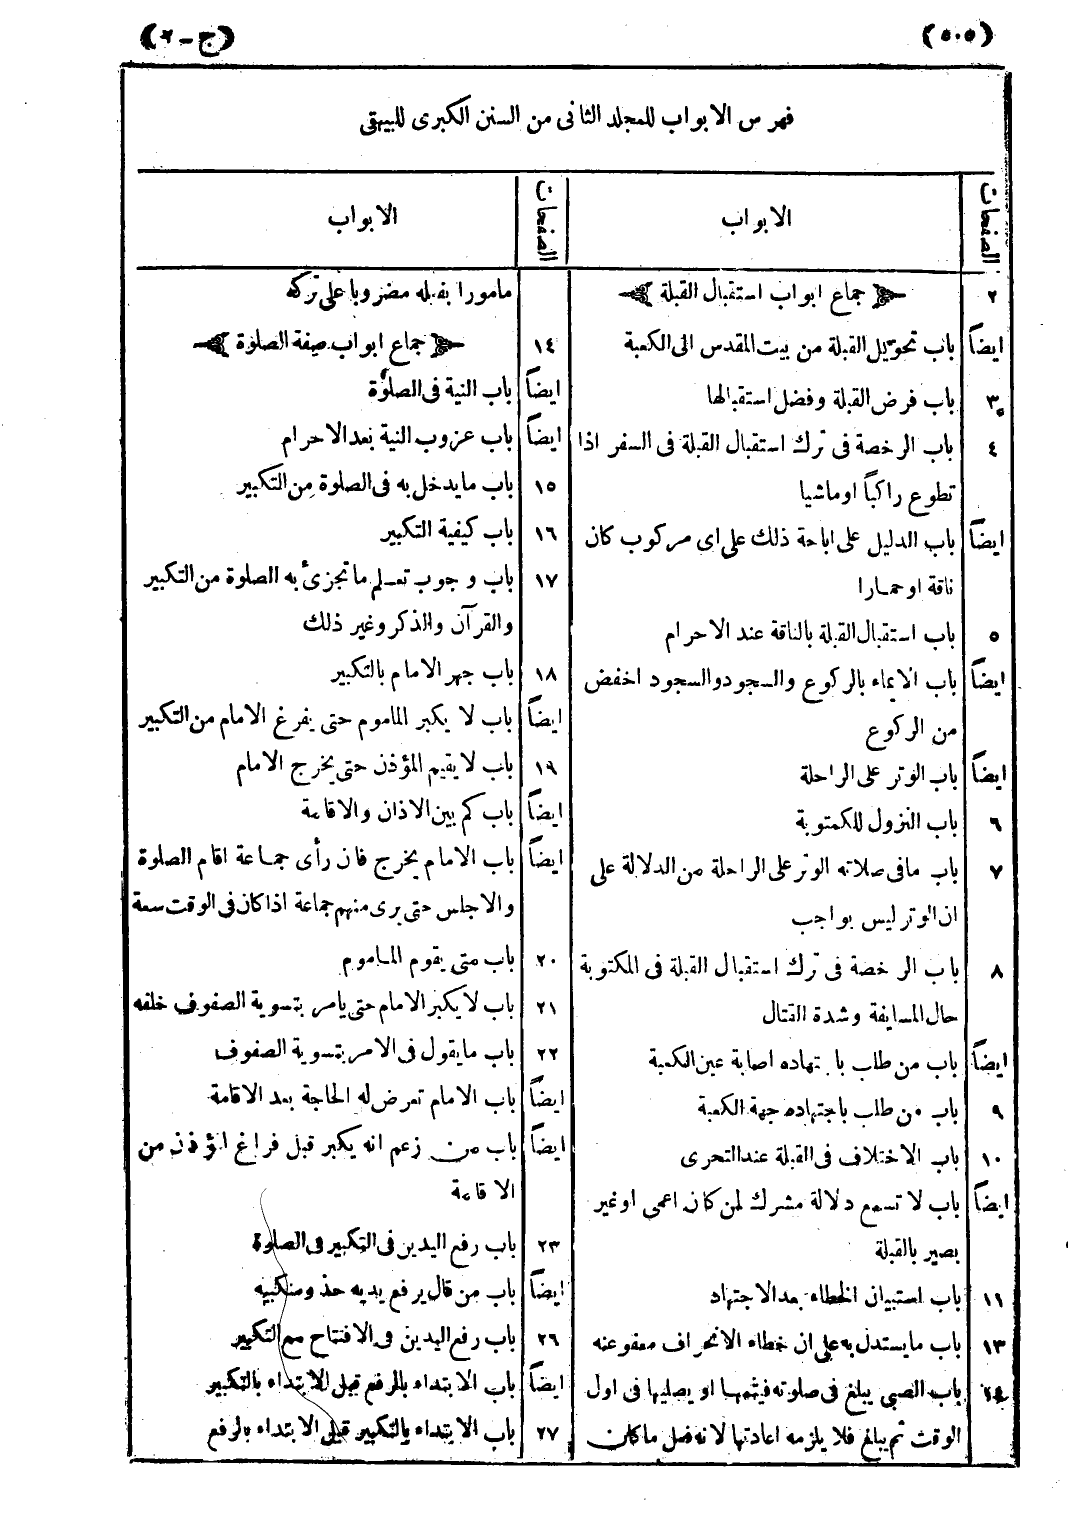 (٥٠٥)
(ج - ٢)
فهرس الابواب للمجلد الثانى من السنن الكبرى للبيهقى
الصفحات
الابواب
٢ جماع ابواب استقبال القبلة
ايضاً باب تحويل القبلة من بيت المقدس الى الكعبة
٣ باب فرض القبلة وفضل استقبالها
٤ باب الرخصة فى ترك استقبال القبلة فى السفر اذا
تطوع راكباً اوماشيا
ايضاً باب الدليل على اباحة ذلك على اى مركوب كان
ناقة اوحمارا
٥ باب استقبال القبلة بالناقة عند الاحرام
ايضاً باب الايماء بالركوع والسجود والسجود اخفض
من الركوع
ايضاً باب الوتر على الراحلة
٦ باب النزول للكمتوبة
٧ باب مافى صلاته الوتر على الراحلة من الدلالة على
ان الوتر ليس بواجب
٨ باب الرخصة فى ترك استقبال القبلة فى المكتوبة
حال المسايفة وشدة القتال
ايضاً باب من طلب باجتهاده اصابة عين الكعبة
٩ باب من طلب باجتهاده جهة الكعبة
١٠ باب الاختلاف فى القبلة عند التحرى
ايضاً باب لا تسمع دلالة مشرك لمن كان اعمى اوغير
بصير بالقبلة
١١ باب استبيان الخطاء بعد الاجتهاد
١٣ باب مايستدل به على ان خطاء الانحراف معفوعنه
١٤ باب الصبى يبلغ فى صلوته فيتمها او يصليها فى اول
الوقت ثم يبلغ فلا يلزمه اعادتها لانه فعل ماكان
الصفحات
الابواب
مامورا بفعله مضروبا على تركه
١٤ جماع ابواب صفة الصلوة
ايضاً باب النية فى الصلوة
ايضاً باب عزوب النية بعد الاحرام
١٥ باب مايدخل به فى الصلوة من التكبير
١٦ باب كيفية التكبير
١٧ باب وجوب تعلم ما تجزئ به الصلوة من التكبير
والقرآن والذكر وغير ذلك
١٨ باب جهر الامام بالتكبير
ايضاً باب لا يكبر الماموم حتى يفرغ الامام من التكبير
١٩ باب لا يقيم المؤذن حتى يخرج الامام
ايضاً باب كم بين الاذان والاقامة
ايضاً باب الامام يخرج فان رأى جماعة اقام الصلوة
والاجلس حتى يرى منهم جماعة اذا كان فى الوقت سعة
٢٠ باب متى يقوم الماموم
٢١ باب لا يكبر الامام حتى يامر بتسوية الصفوف خلفه
٢٢ باب مايقول فى الامر بتسوية الصفوف
ايضاً باب الامام تعرض له الحاجة بعد الاقامة
ايضاً باب من زعم انه يكبر قبل فراغ المؤذن من
الاقامة
٢٣ باب رفع اليدين فى التكبير فى الصلوة
ايضاً باب من قال يرفع يديه حذو منكبيه
٢٦ باب رفع اليدين فى الافتتاح مع التكبير
ايضاً باب الابتداء بالرفع قبل الابتداء بالتكبير
٢٧ باب الابتداء بالتكبير قبل الابتداء بالرفع